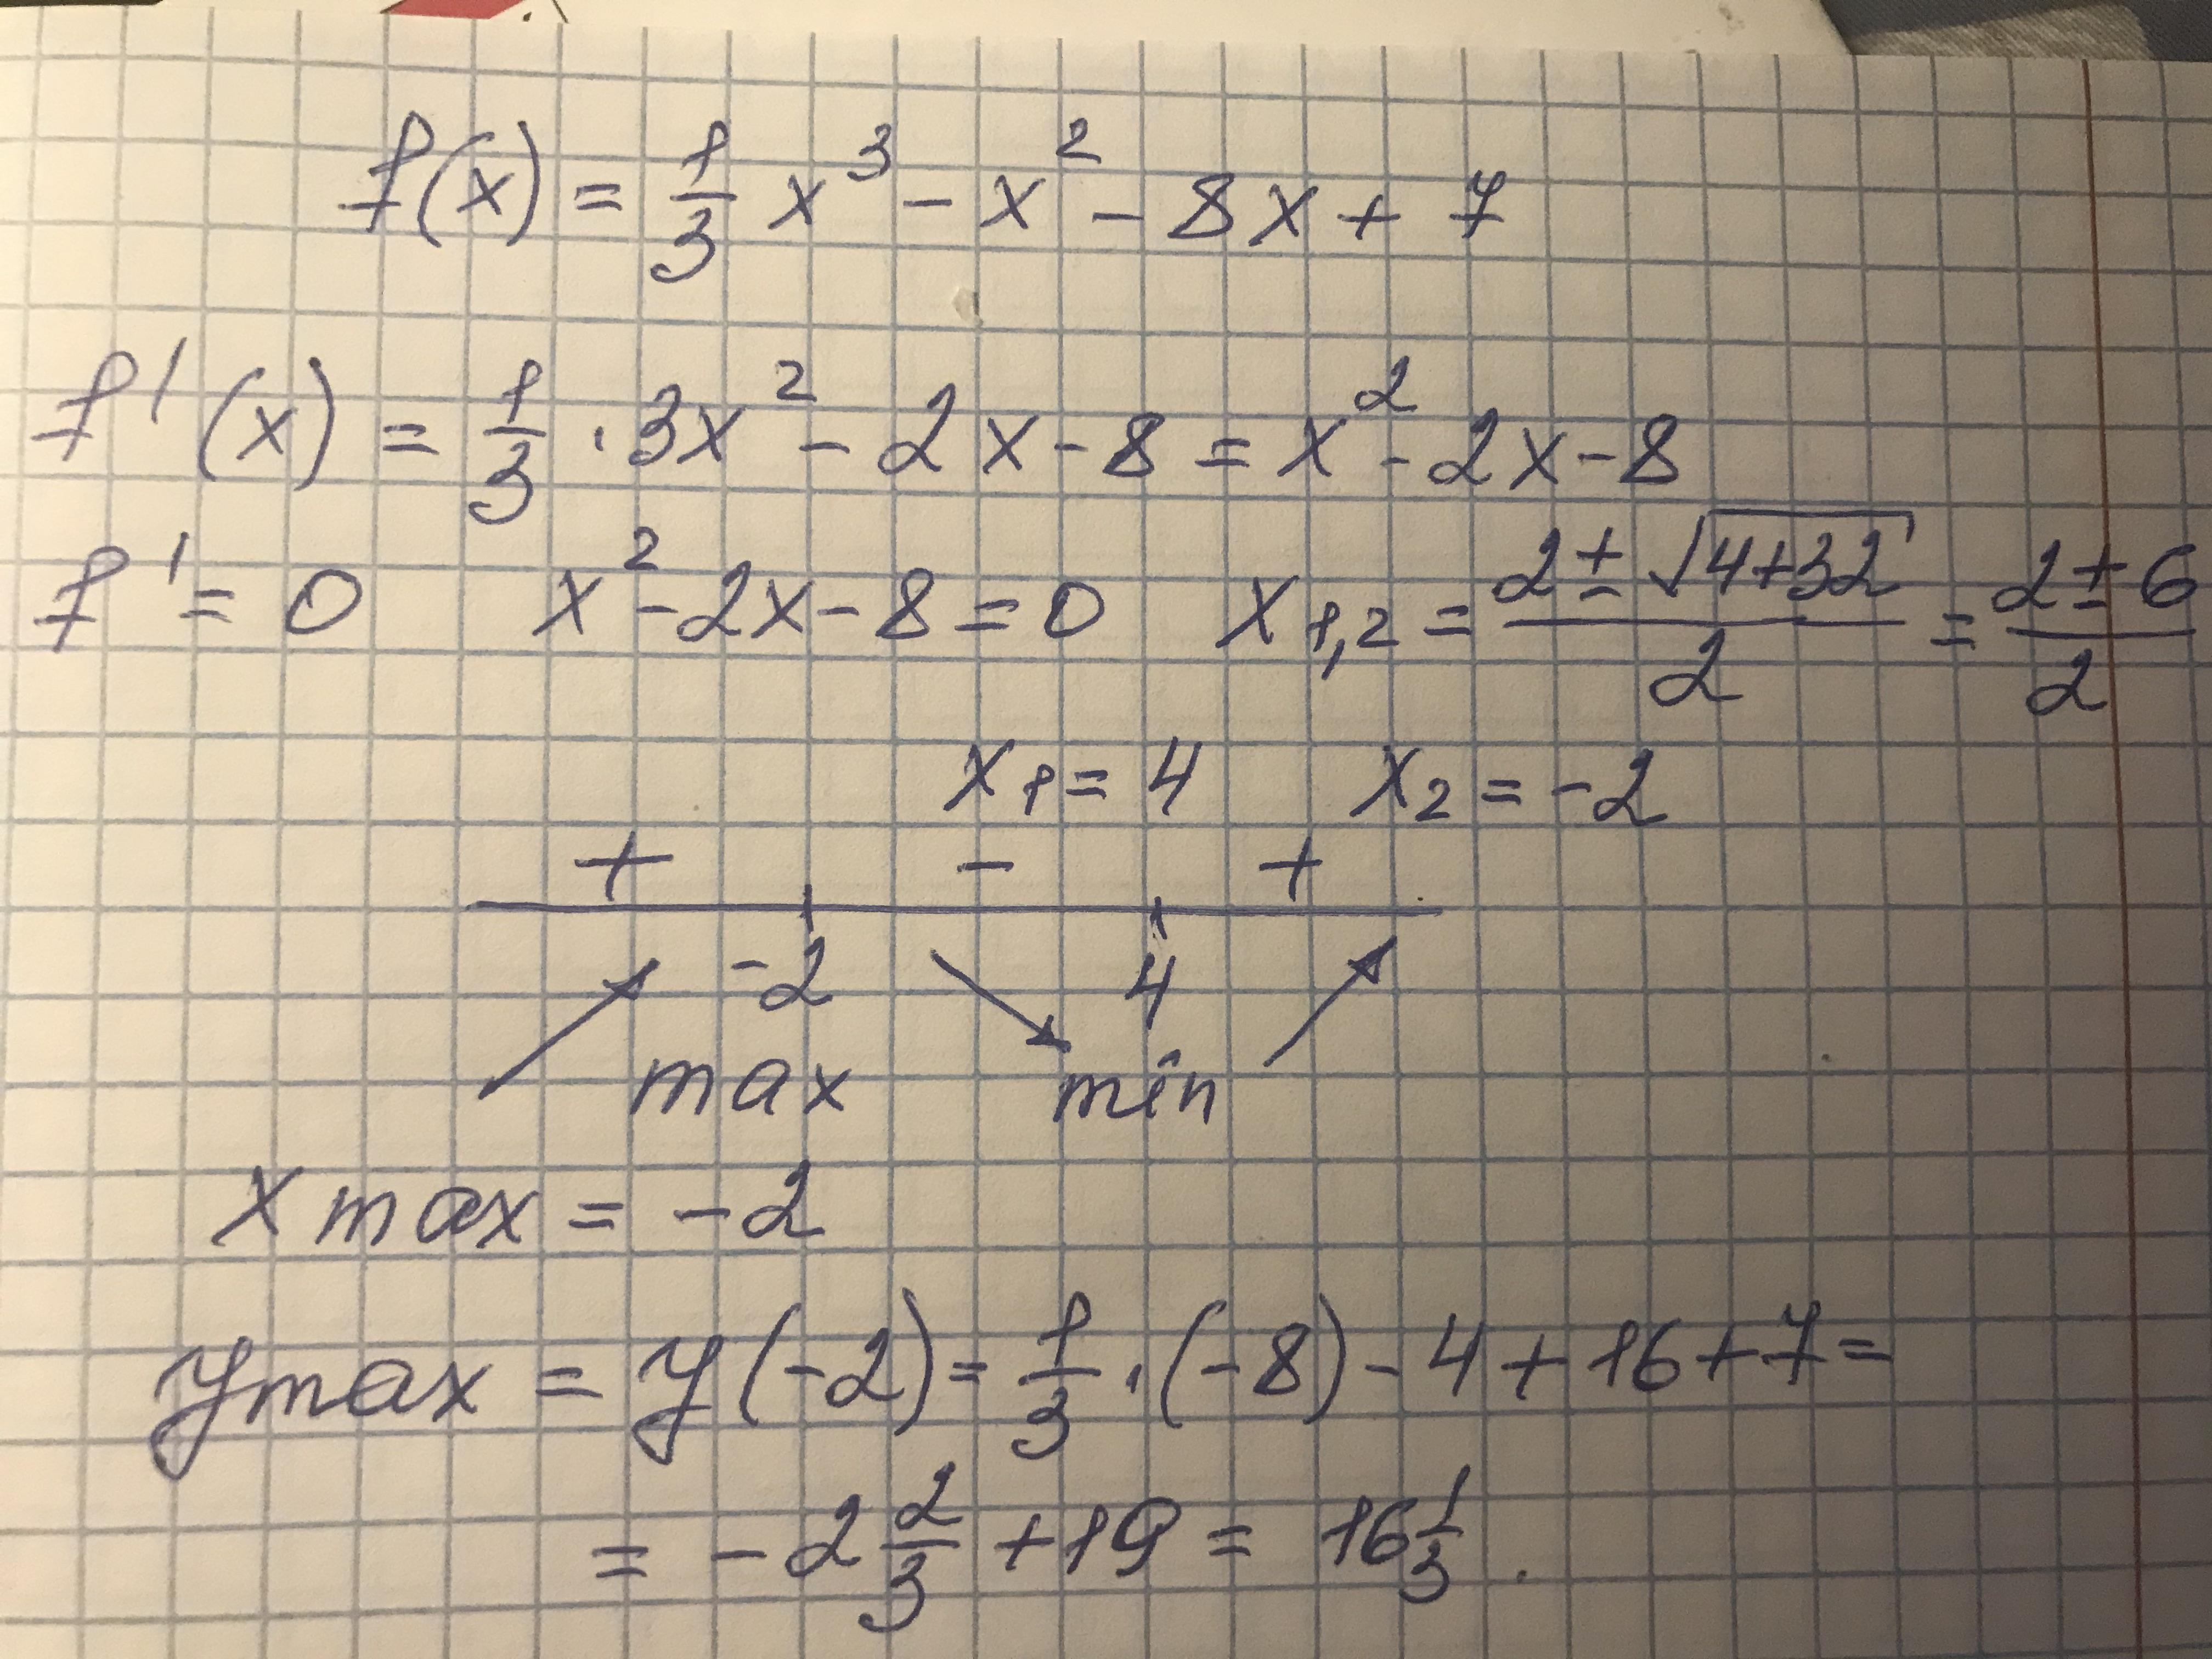 f(x) = 1/3 x³ - x² - 8x + 7
f'(x) = 1/3 · 3x² - 2x - 8 = x² - 2x - 8
f' = 0 x² - 2x - 8 = 0 x₁,₂ = (2 ± √(4+32))/2 = (2 ± 6)/2
x₁ = 4 x₂ = -2
+ - +
-2 4
max min
x max = -2
y max = y(-2) = 1/3 · (-8) - 4 + 16 + 7 =
= -2 2/3 + 19 = 16 1/3 .